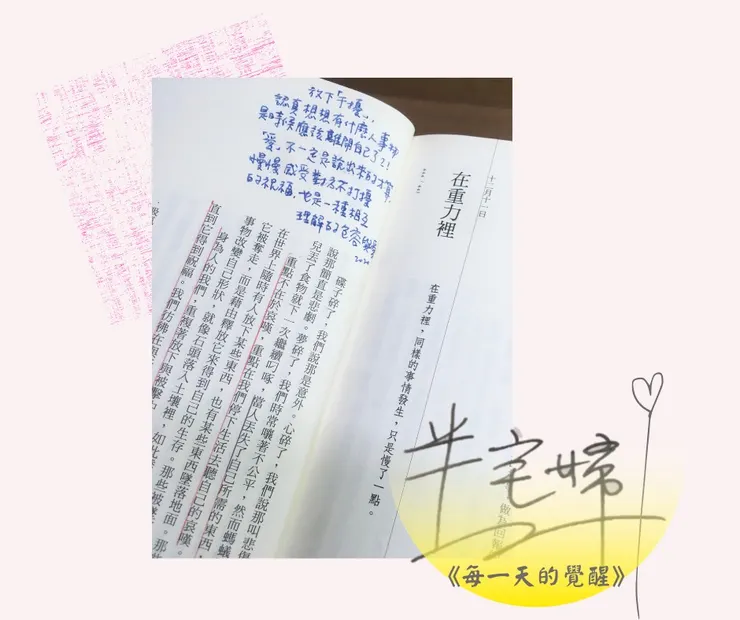 放下「干擾」，
認真想想有什麼人事物
是時候應該離開自己了？！
「愛」不一定是說出來的才算，
慢慢感受對方不打擾
的祝福，也是一種相互
理解的包容
2020
十二月十一日
在重力裡
在重力裡，同樣的事情發生，只是慢了一點。
碟子碎了，我們說那是意外。心碎了，我們說那叫悲傷
說那簡直是悲劇。夢碎了，我們時常嚷著不公平，然而螞蟻
兒丟了食物就下一次繼續叼啄，當人丟失了自己所需的東西，
重點不在於哀嘆，重點在我們停下生活去聽自己的哀嘆。
在世界上隨時有人放下某些東西，也有某些東西墜落地面。那些
它被奪走，而是藉由釋放它來得到自己的生存。
事物改變自己形狀，就像石頭落入土壤裡，
身為人的我們，重複著放下與被擊
直到它得到祝福。我們彷彿在
半宅婦
《每一天的覺醒》